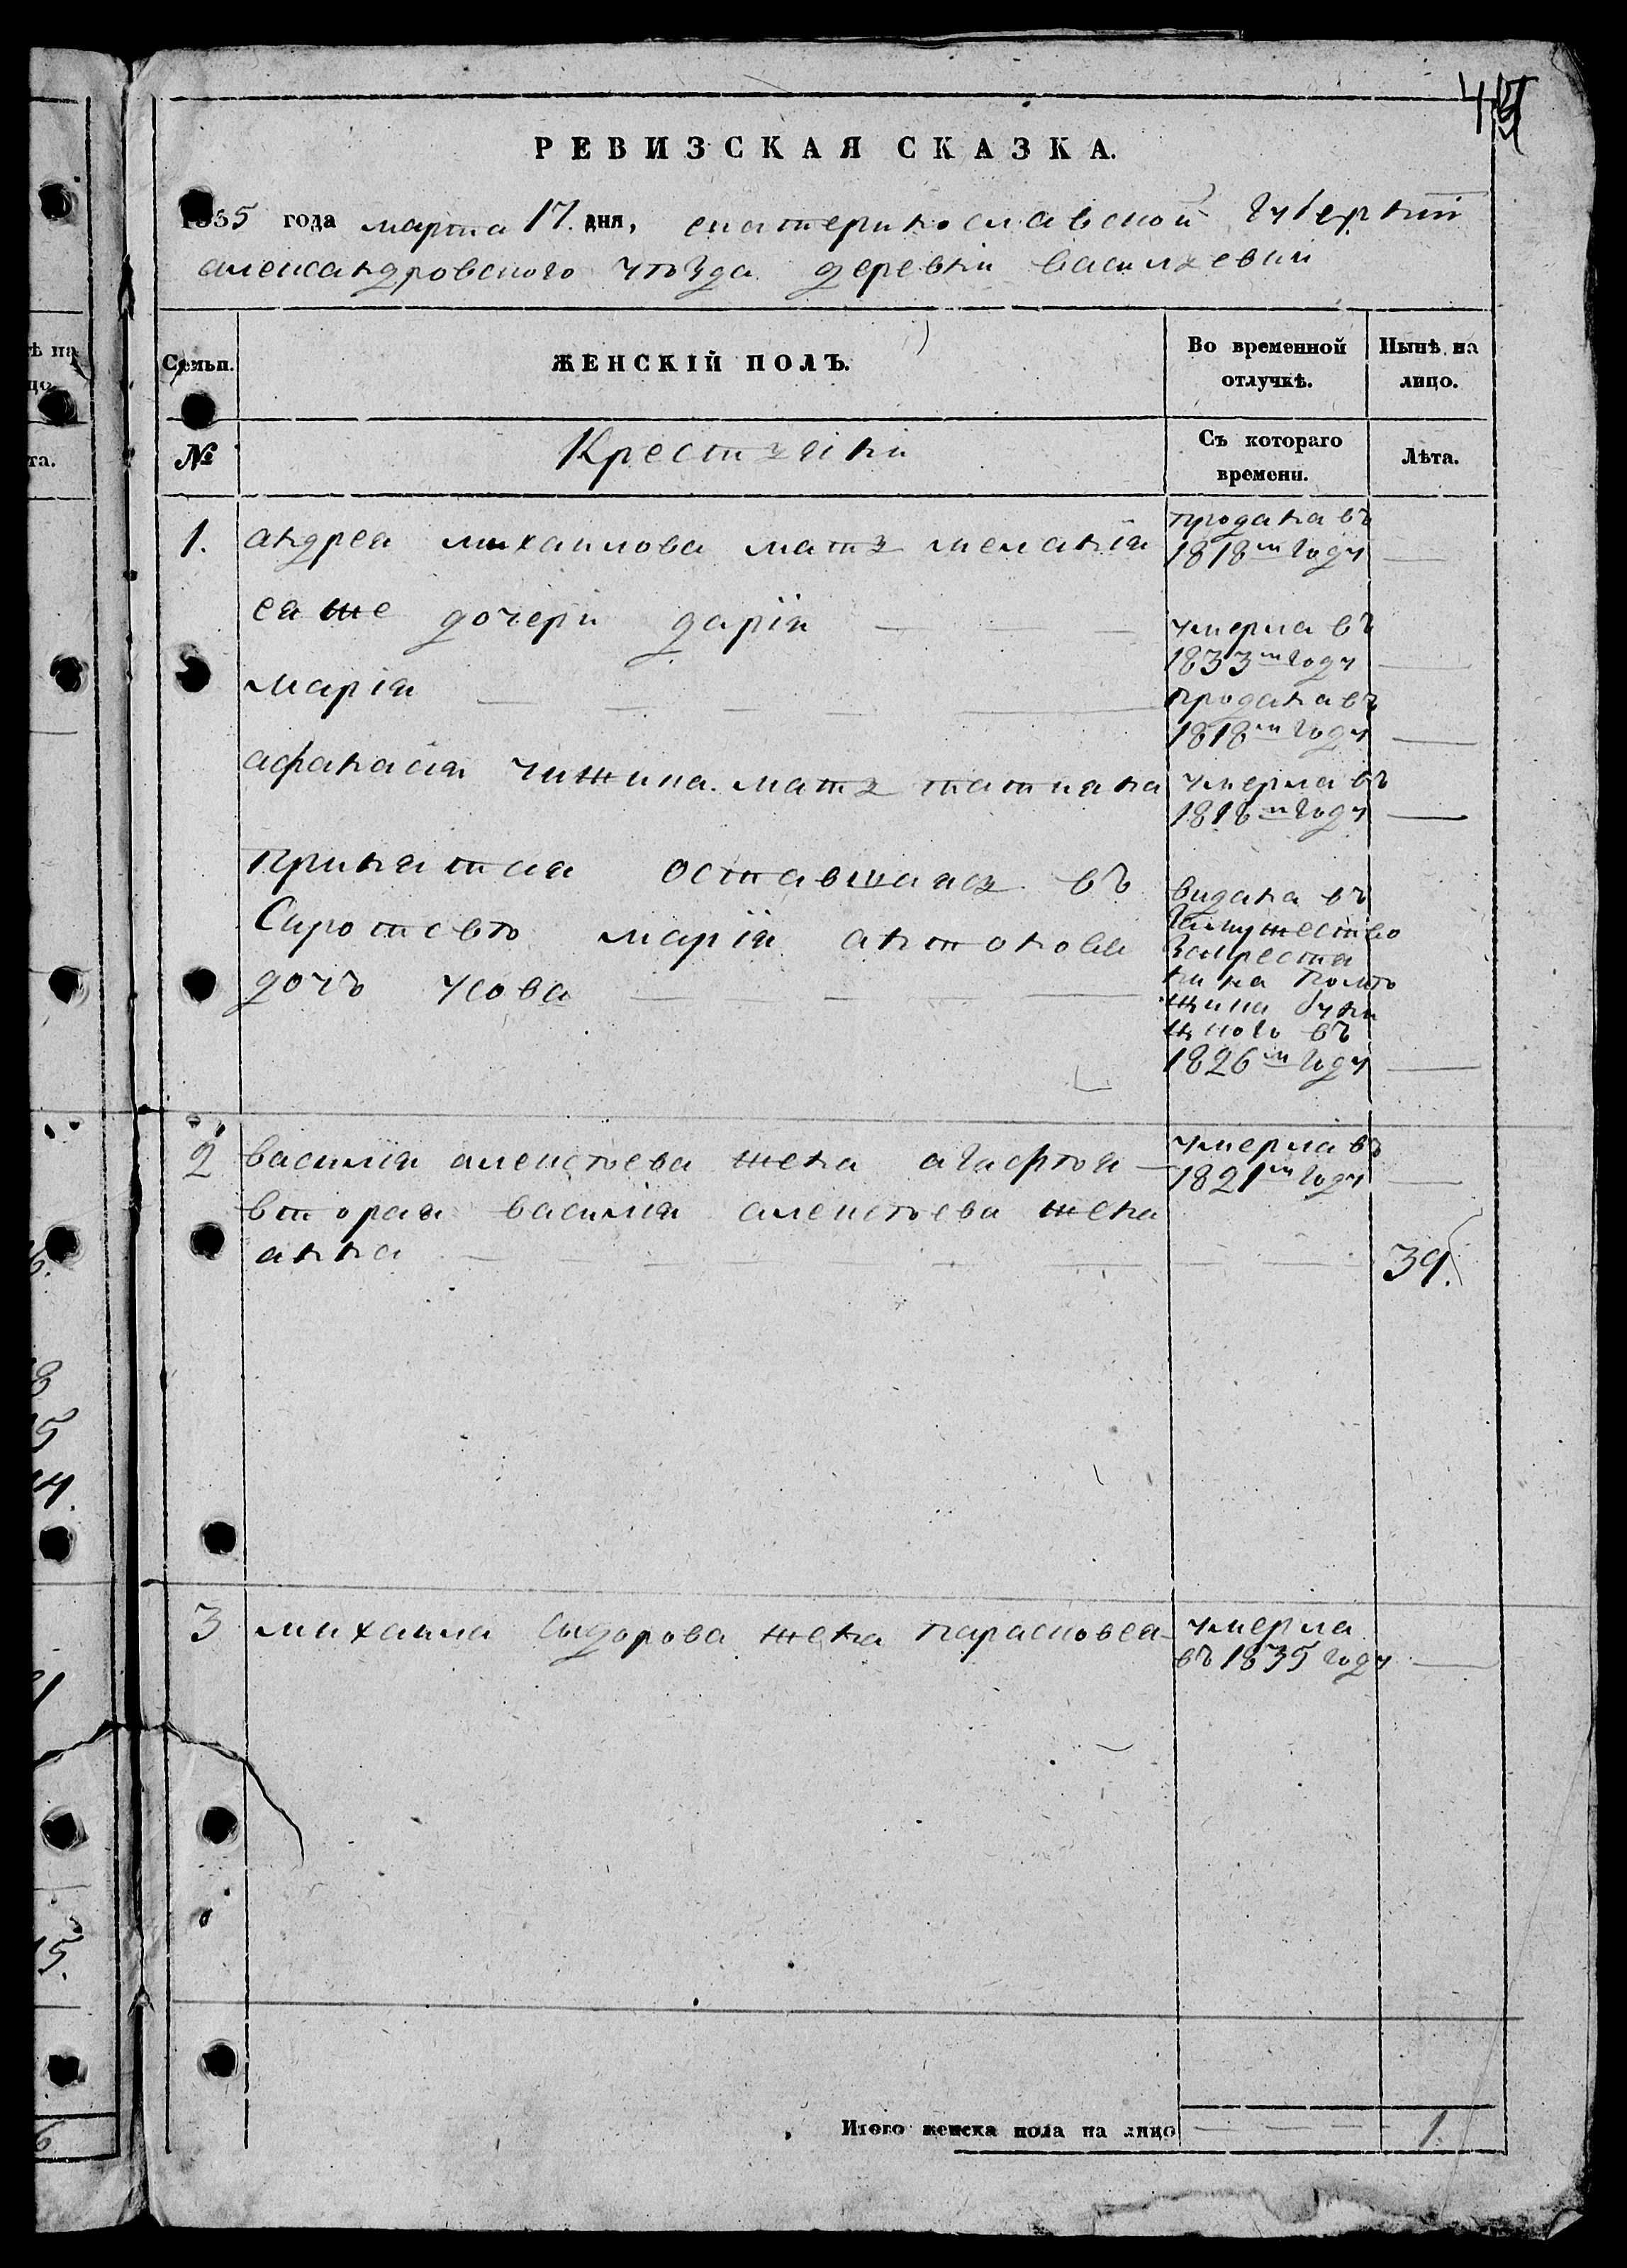 РЕВИЗСКАЯ СКАЗКА.
1835 года марта 17. дня, екатеринославской губернии
александровского уѣзда деревни васильевки
Семьи.
ЖЕНСКІЙ ПОЛЪ.
Во временной отлучкѣ.
Нынѣ на лицо.
№
Крестьянки
Съ котораго времени.
Лѣта.
1. андрея михайлова мать меланія
продана въ
1818м году —
ея же дочери дарія
умерла въ
1833м году —
марія
продана въ
1818м году —
афанасія чижика мать татиана
умерла въ
1818м году —
принятая оставшаясь въ
сиротсвѣ марія антонова
дочъ усова
видана въ
замужество
закрестя
нина помѣ
щика
въ
1826м году —
2 василія алексѣева жена агафѣя
умерла въ
1821м году —
вторая василія алексѣева жена
анна
39.
3 михаила сидорова жена парасковеа
умерла
въ 1835 году —
Итого женска пола на лицо 1.